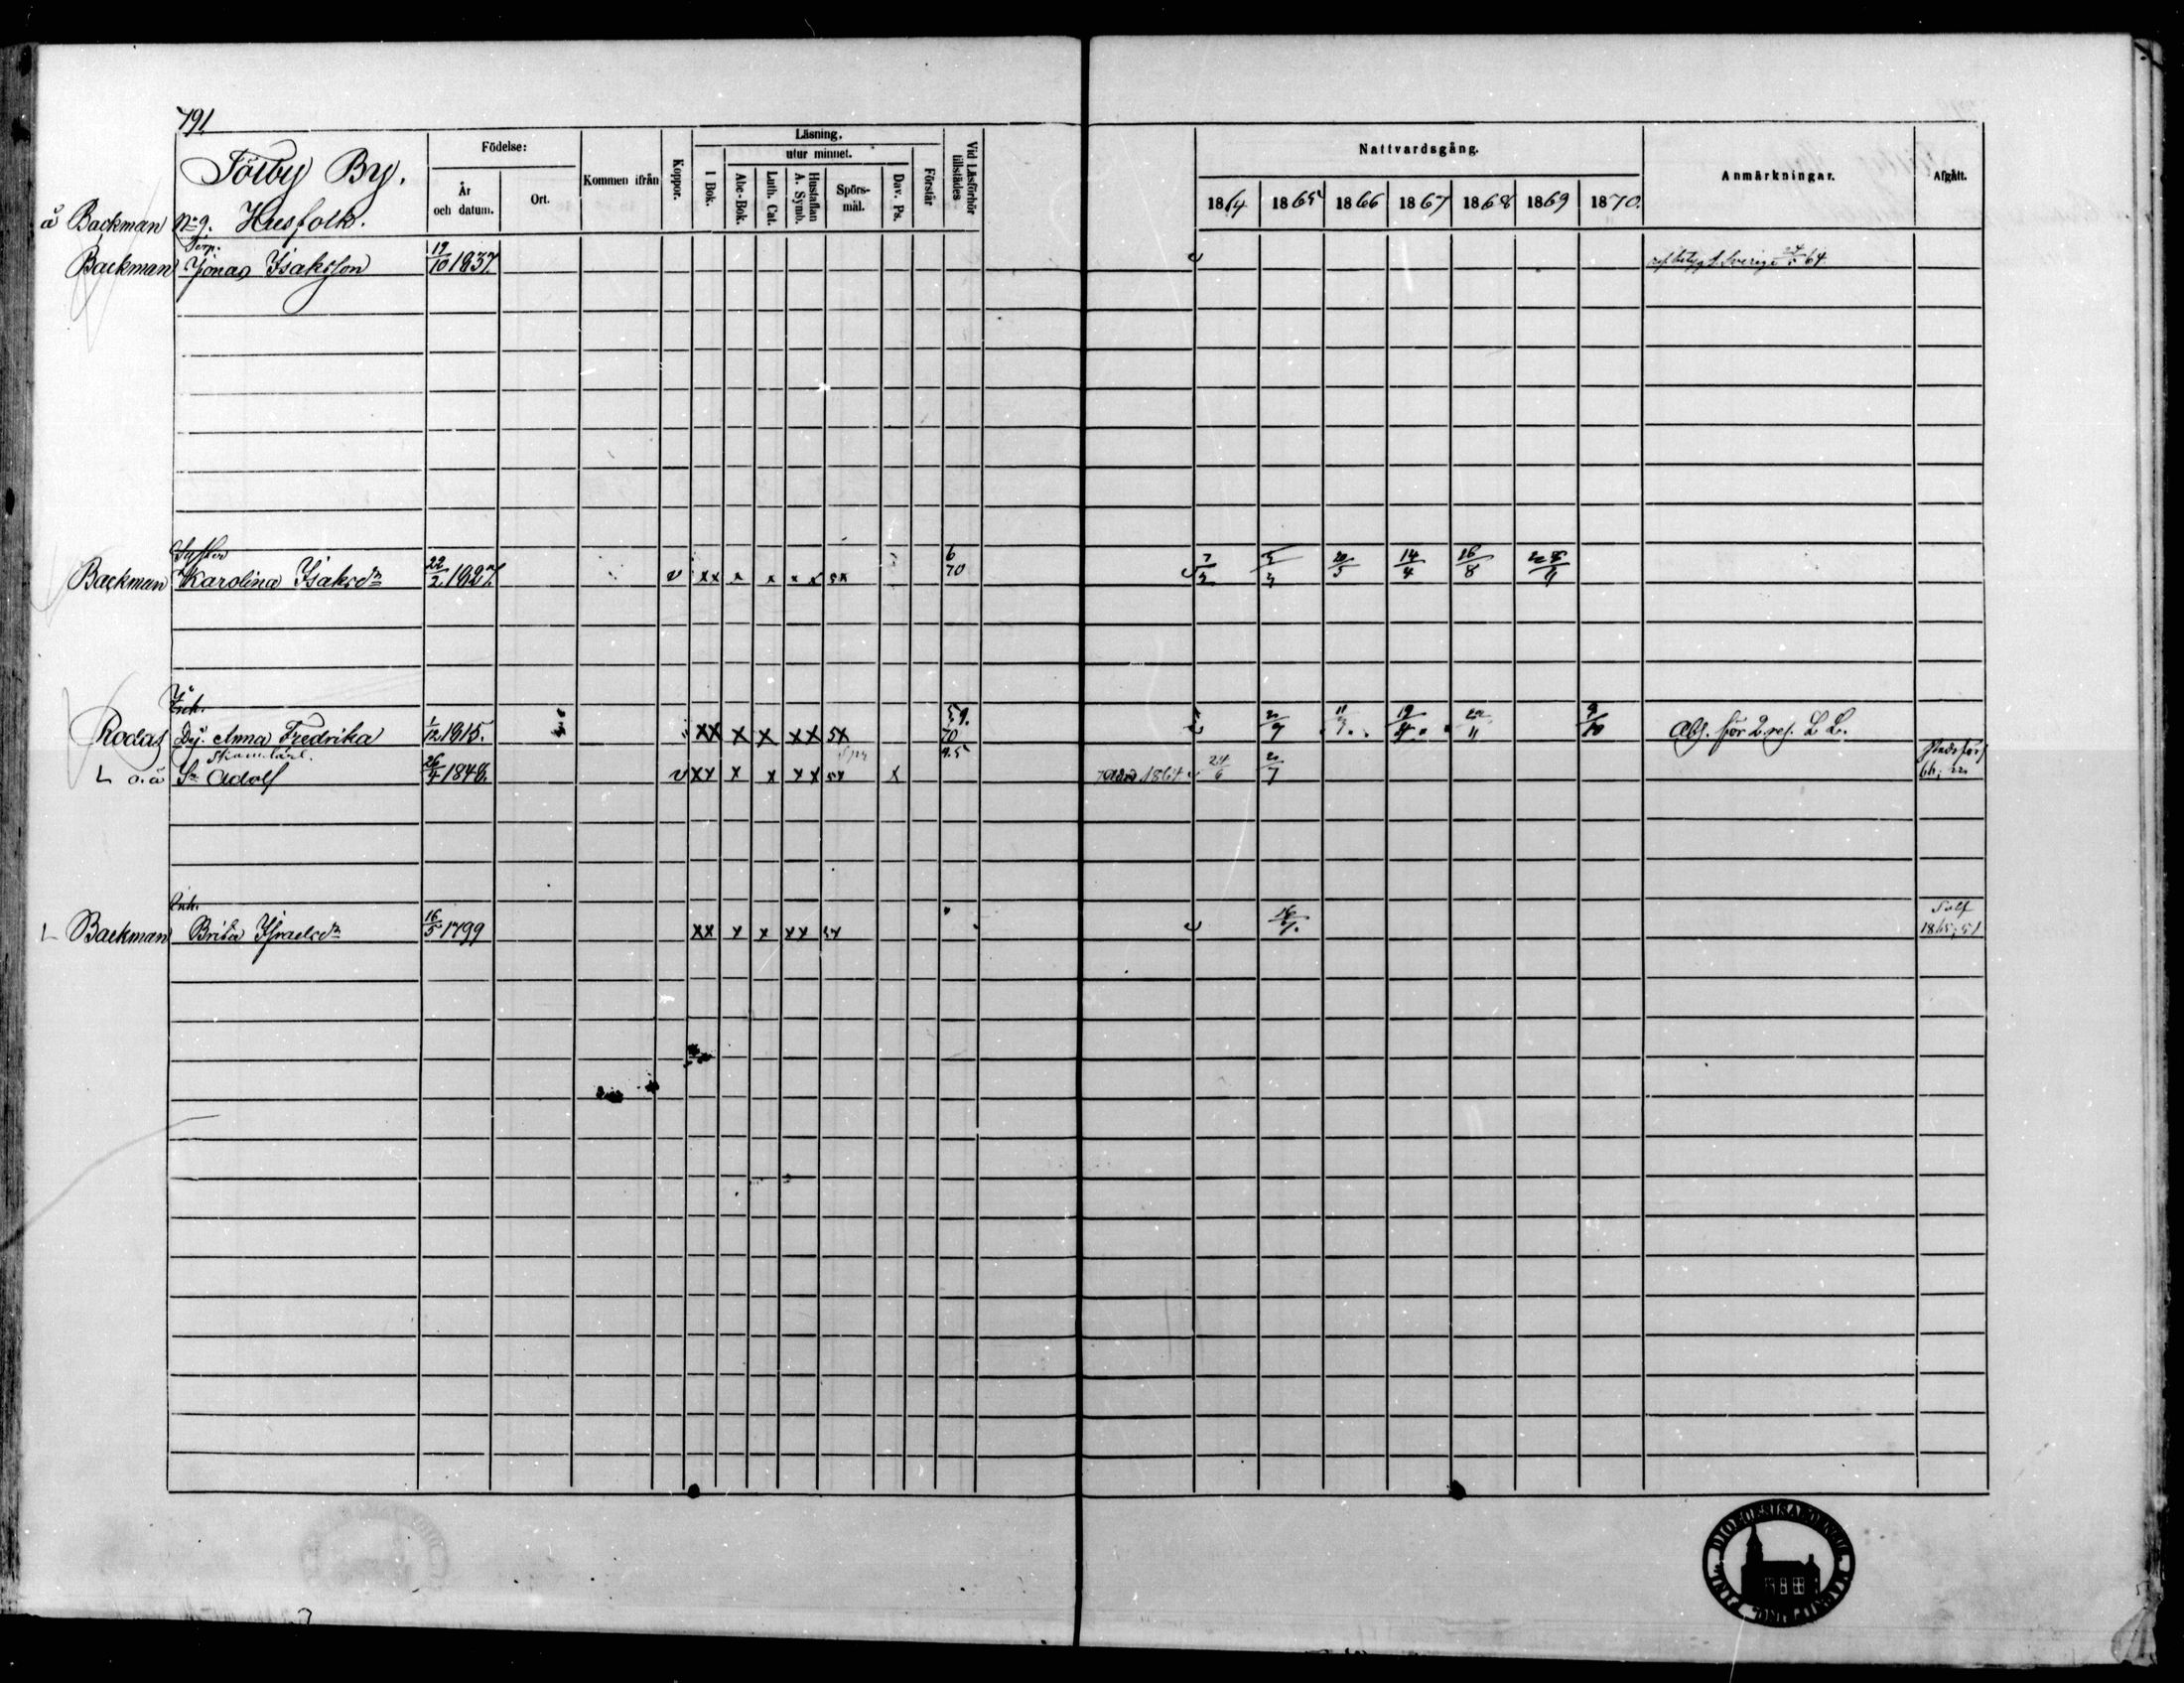 791
Tölby By.
å Backman No 9. Husfolk.
Födelse:
År och datum.
Ort.
Kommen ifrån
Koppor.
Läsning.
I Bok.
utur minnet.
Abc-Bok.
Luth. Cat.
Hustaflan A. Symb.
Spörs-mål.
Dav. Ps.
Förstår
Vid Läsförhör tillstädes
Nattvardsgång.
1864 1865 1866 1867 1868 1869 1870.
Anmärkningar.
Afgått.
Backman Jonas Isaksson 19/10 1837. Sverige 64.
Syster
Backman Karolina Isaksdr 22/2 1827. v xx x x x x 5x 6 70 20/5 14/4 16/8
Inh.
Rodas Dej. Anna Fredrika 1/12 1815. xx x x xx 5x 59. 70 19/4 9/10 Abs. för 2 res. L L.
L o. ä Sn Adolf 26/4 1848. v xx x x xx 5x x 1864 24/6
Inh.
L Backman Brita Israelsdr 16/5 1799 xx x x xx 5x Solf
1865; 51